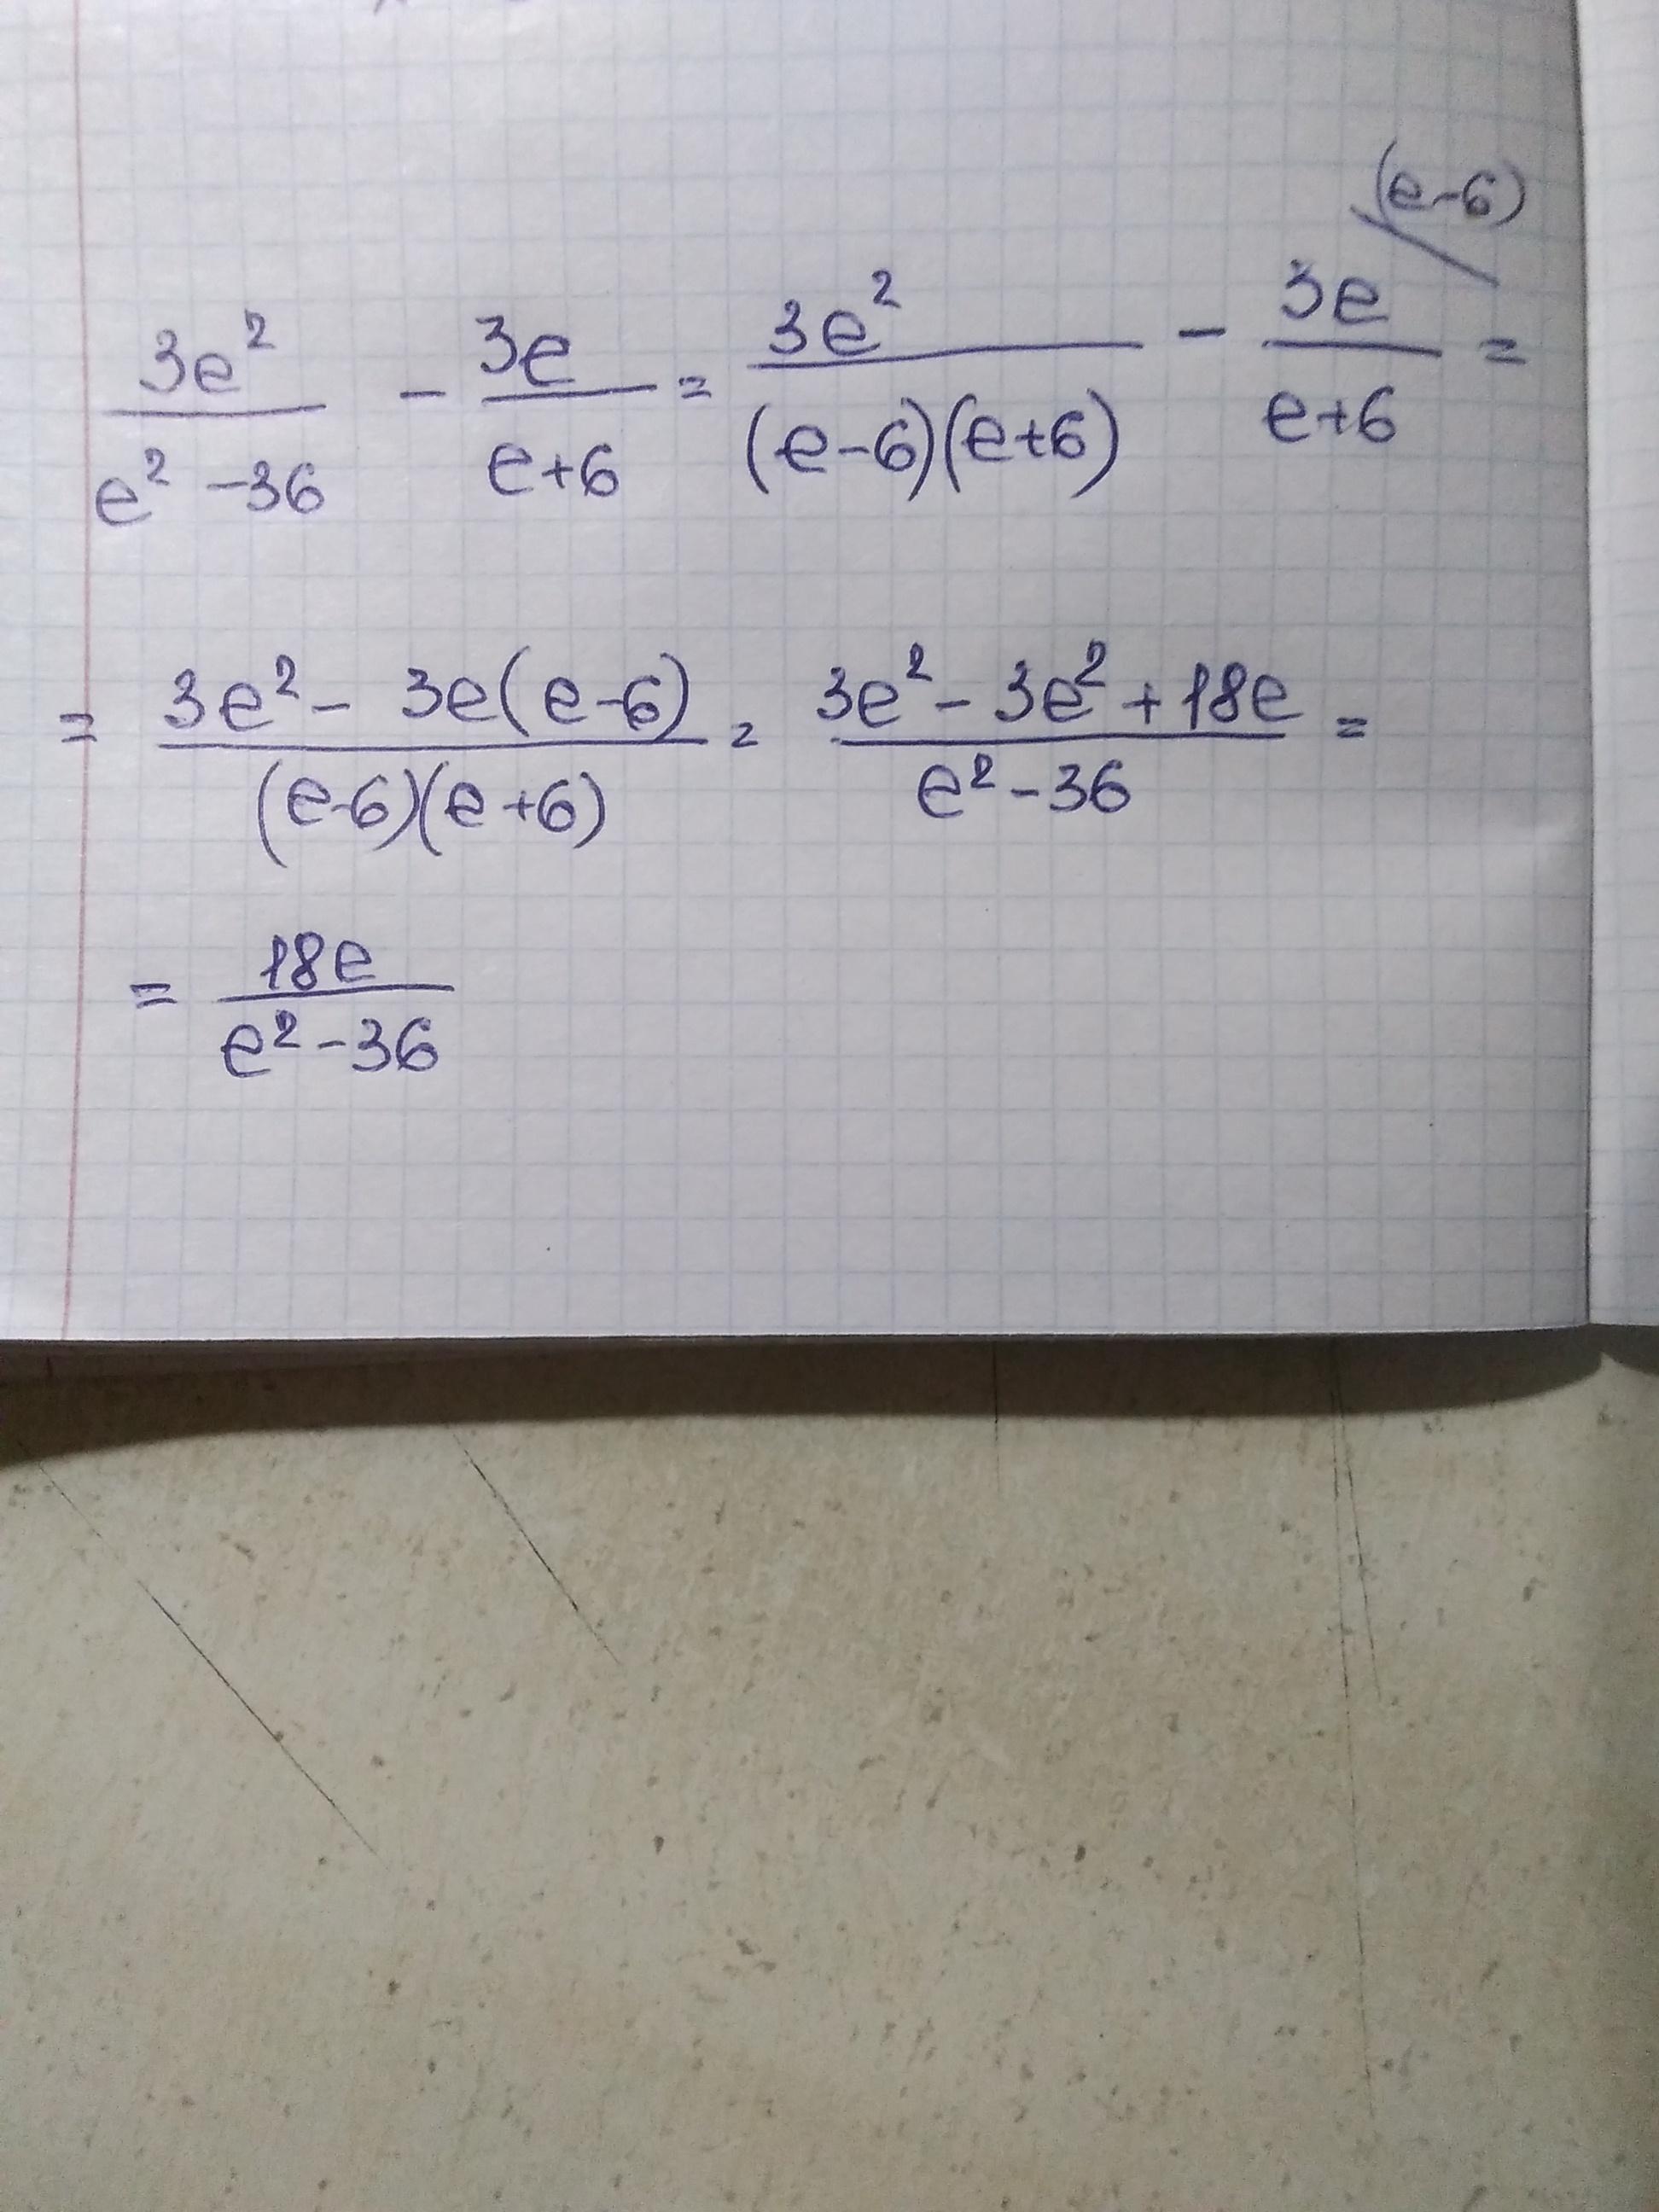 (e-6)
3e² / e² - 36 - 3e / e+6 = 3e² / (e-6)(e+6) - 3e / e+6 =
= 3e² - 3e(e-6) / (e-6)(e+6) = 3e² - 3e² + 18e / e² - 36 =
= 18e / e² - 36